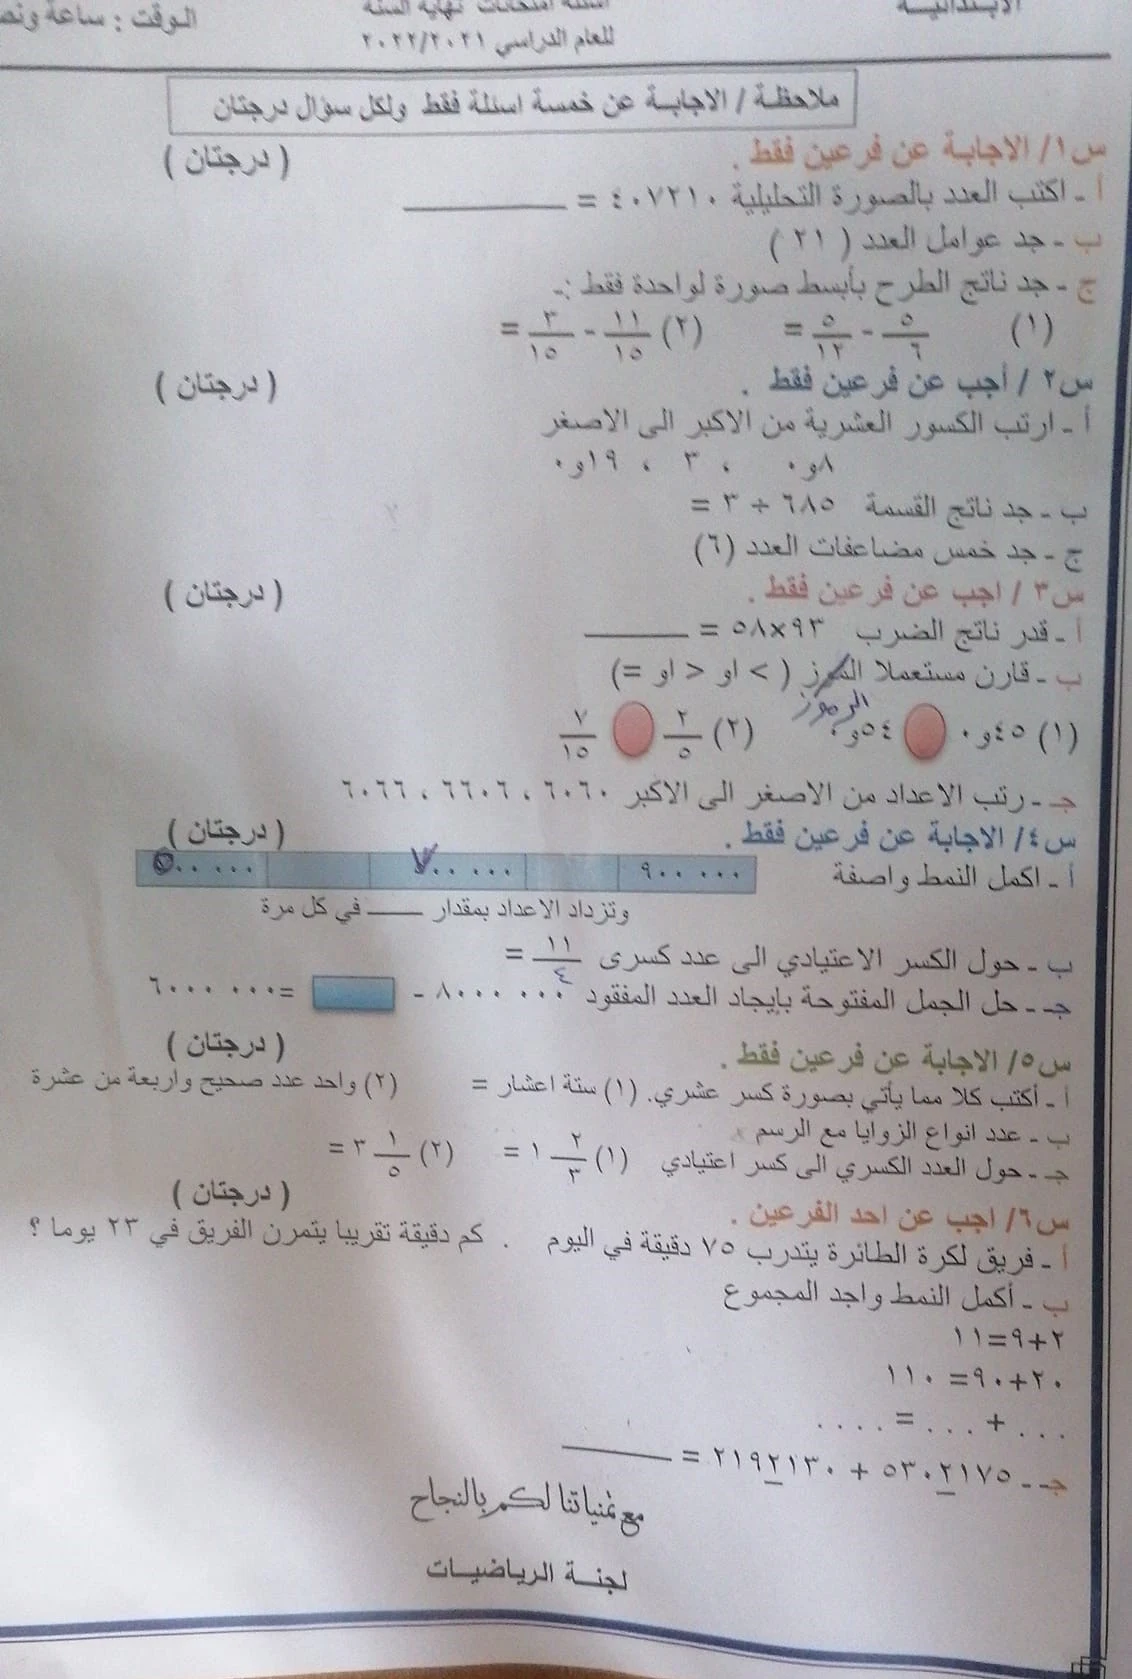 الابتدائية
اسئلة امتحانات نهاية السنة
للعام الدراسي ٢٠٢٢/٢٠٢١
الوقت : ساعة ونص
ملاحظة / الاجابة عن خمسة اسئلة فقط ولكل سؤال درجتان
س١/ الاجابة عن فرعين فقط . ( درجتان )
أ - اكتب العدد بالصورة التحليلية ٤٠٧٢١٠ = ـــــــــ
ب - جد عوامل العدد ( ٢١ )
ج - جد ناتج الطرح بأبسط صورة لواحدة فقط :-
(١) ٥/٦ - ٥/١٢ = (٢) ١١/١٥ - ٣/١٥ =
س٢ / أجب عن فرعين فقط . ( درجتان )
أ - ارتب الكسور العشرية من الاكبر الى الاصغر
٨و٠ ، ٣ ، ١٩و٠
ب - جد ناتج القسمة ٦٨٥ ÷ ٣ =
ج - جد خمس مضاعفات العدد (٦)
س٣ / اجب عن فرعين فقط . ( درجتان )
أ - قدر ناتج الضرب ٩٣×٥٨ = ـــــــ
ب - قارن مستعملا الرموز ( > او < او =)
الرموز
(١) ٤٥و٠ ٥٤و٠ (٢) ٢/٥ ٧/١٥
جـ - رتب الاعداد من الاصغر الى الاكبر ٦٠٦٠ ، ٦٦٠٦ ، ٦٠٦٦
س٤/ الاجابة عن فرعين فقط . ( درجتان )
أ - اكمل النمط واصفة ٩٠٠ ٠٠٠ ٧٠٠ ٠٠٠ ٥٠٠ ٠٠٠
وتزداد الاعداد بمقدار ــــــ في كل مرة
ب - حول الكسر الاعتيادي الى عدد كسرى ١١/٤ =
جـ - حل الجمل المفتوحة بإيجاد العدد المفقود ٨٠٠٠ ٠٠٠ - =٦٠٠٠ ٠٠٠
س٥/ الاجابة عن فرعين فقط . ( درجتان )
أ - أكتب كلا مما يأتي بصورة كسر عشري. (١) ستة اعشار = (٢) واحد عدد صحيح واربعة من عشرة
ب - عدد انواع الزوايا مع الرسم
جـ - حول العدد الكسري الى كسر اعتيادي (١) ٢/٣ ١ = (٢) ١/٥ ٣ =
س٦/ اجب عن احد الفرعين . ( درجتان )
أ - فريق لكرة الطائرة يتدرب ٧٥ دقيقة في اليوم . كم دقيقة تقريبا يتمرن الفريق في ٢٣ يوما ؟
ب - أكمل النمط واجد المجموع
٢+٩=١١
٢٠+٩٠= ١١٠
. . . + . . . = . . . .
جـ - ٥٣٠٢١٧٥ + ٢١٩٢١٣٠ = ـــــــ
مع تمنياتنا لكم بالنجاح
لجنة الرياضيات